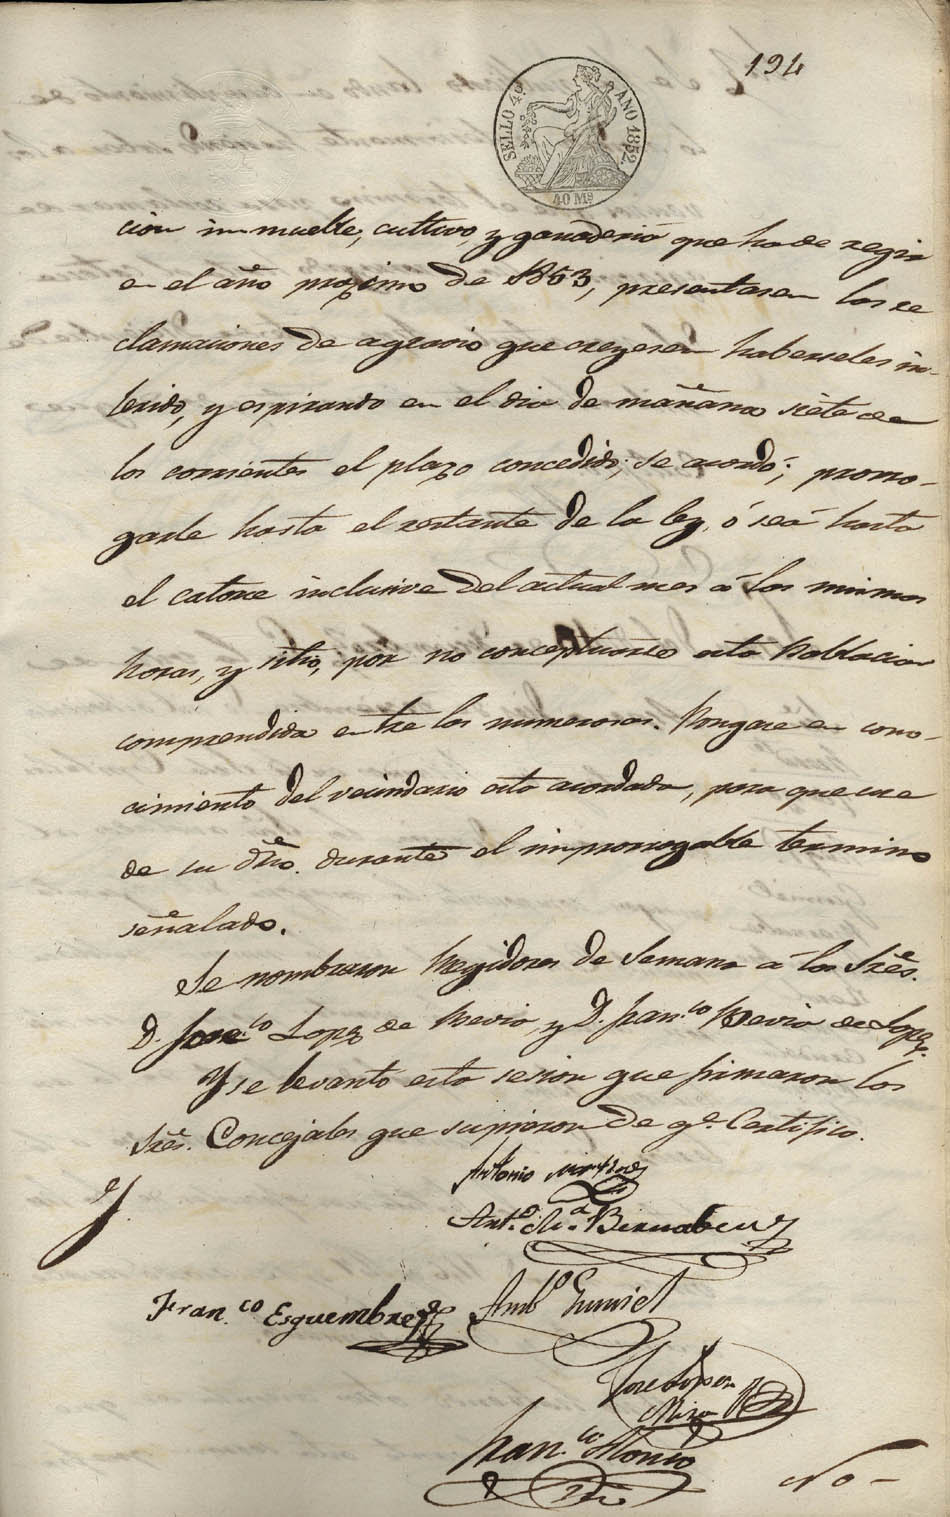 194
SELLO 4º AÑO 1852.
40 Ms
cion inmueble, cultivo, y ganaderia que ha de regir
en el año proximo de 1853, presentasen las re
clamaciones de agravio que creyesen haberseles in-
ferido, y espirando en el dia de mañana siete de
los corrientes el plazo concedido; se acordó; prorro-
garle hasta el restante de la ley, ó sea hasta
el catorce inclusive del actual mes á los mismos
horas, y sitio, por no conceptuarse esta Poblacion
comprendida entre las numerosas. Pongase en cono-
cimiento del vecindario esta acordada, para que use
de su dro. durante el improrrogable termino
señalado.
Se nombraron Regidores de Semana á los Sres.
D. Lopez de y D. Fran.co de Lopez.
Y se levantó esta sesion que firmaron los
Sres. Concejales que supieron de q.e Certifico.
Antonio
Ant.o M.a Bernabeu
Fran.co Esquembre
Amb.o Gumiel
Jose Lopez
Fran.co Alonso
No-